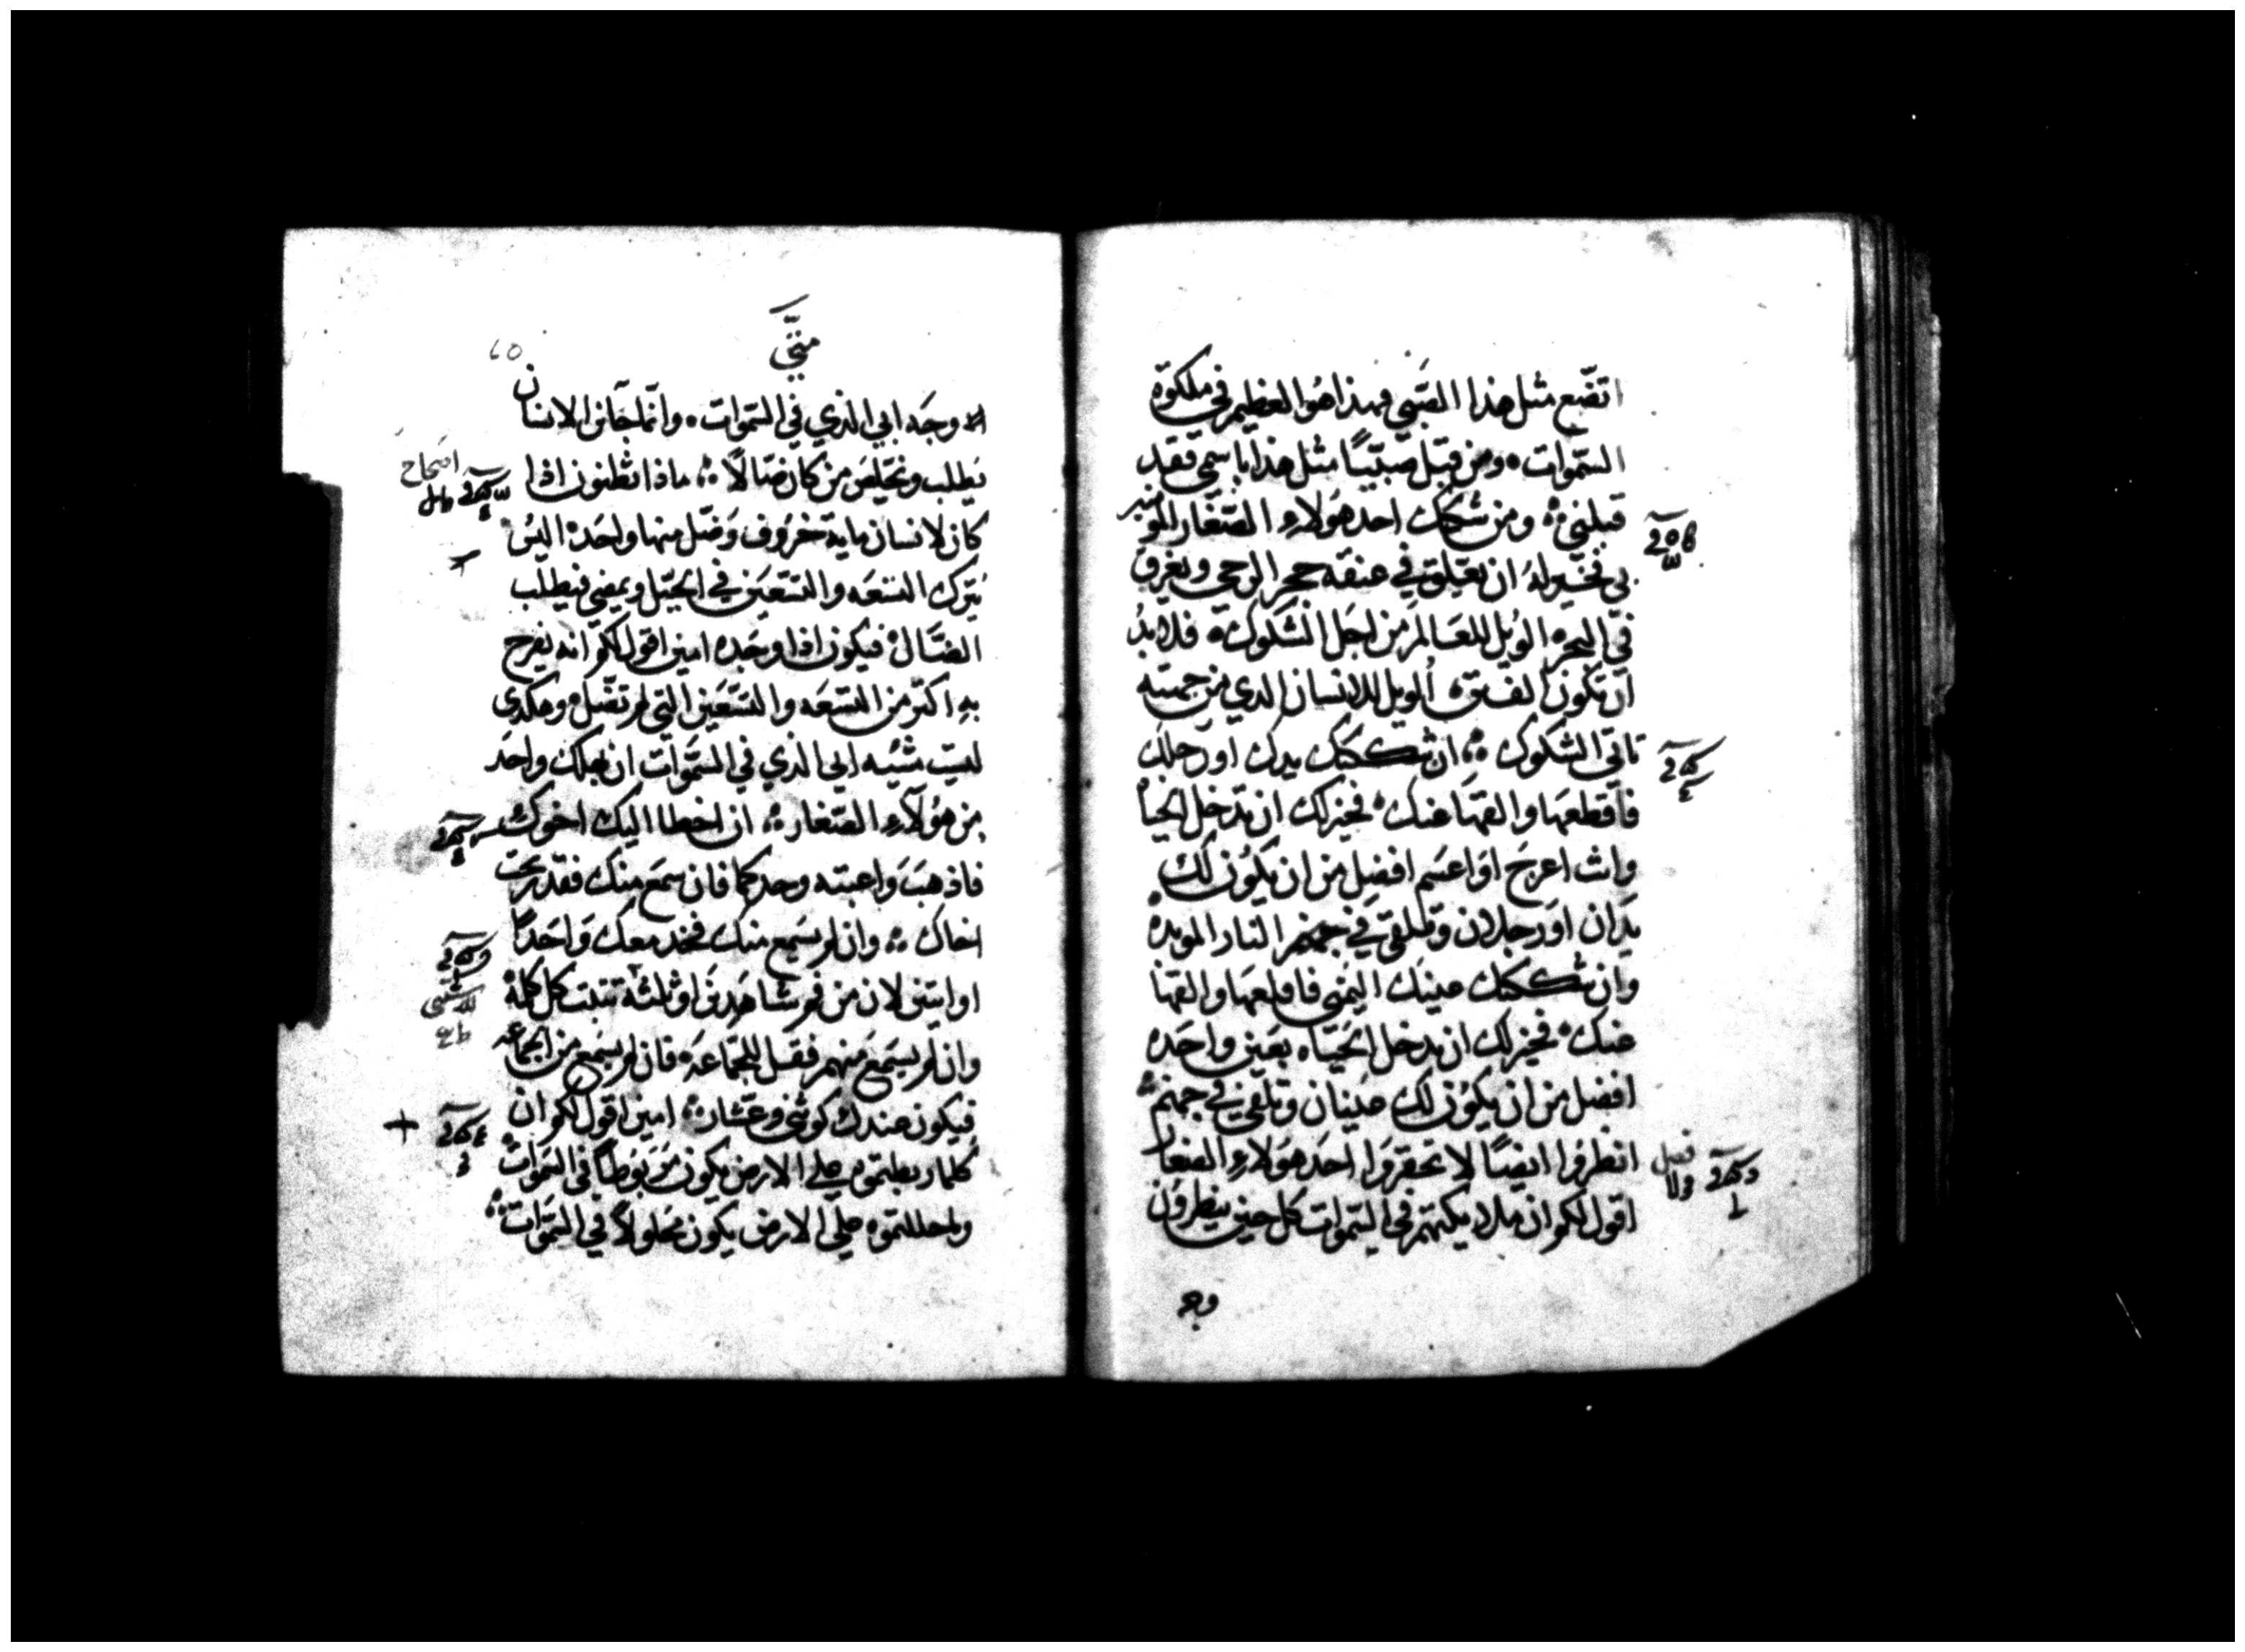 اتضع مثل هذا الصبي فهذا هو العظيم في ملكوة
السموات ومن قبل صبيًا مثل هذا باسمي فقد
قبلني ومن شكك احد هولاء الصغار المومنين
بي فخير له ان يعلق في عنقه حجر الرحى ويغرق
في البحر الويل للعالم من اجل الشكوك فلا بد
ان تكون الويل للانسان الدي من جهته
تاتي الشكوك ان شككتك يدك او رجلك
فاقطعها والقها عنك فخير لك ان تدخل الحياه
وانت اعرج او اعسم افضل من ان يكون لك
يدان او رجلان وتلقى في جهنم النار الموبده
وان شككتك عينك اليمنى فاقلعها والقها
عنك فخير لك ان تدخل الحياه بعين واحده
افضل من ان يكون لك عينان وتلقى في جهنم
انظروا ايضًا لا تحقروا احد هولاء الصغار
فصل
اقول لكم ان ملايكتهم في السموات كل حين ينظرون
وجه
متى
الا وجه ابي الذي في السموات وانما جا بن الانسان
يطلب ويخلص من كان ضالًا ماذا تظنون اذا
اصحاح
كان لانسان ماية خروف وضل منها واحده اليس
يترك التسعه والتسعين في الجبل ويمضي فيطلب
الضال فيكون اذا وجده امين اقول لكم انه يفرح
به اكتر من التسعه والتسعين التي لم تضل وهكدى
ليس مشيه ابي الذي في السموات ان يهلك واحد
من هولاء الصغار ان اخطا اليك اخوك
فاذهب واعبته وحدكما فان سمع منك فقد ربحت
اخاك وان لم يسمع منك فخد معك واحدًا
او اتنين لان من فم شاهدين او ثلثة تتبت كل كلمة
وان لم يسمع منهم فقل للجماعه فان لم يسمع من الجماعه
فيكون عندك كوثني وعشار امين اقول لكم ان
كلما ربطتموه على الارض يكون مربوطًا في السموات
وما حللتموه على الارض يكون محلولًا في السموات